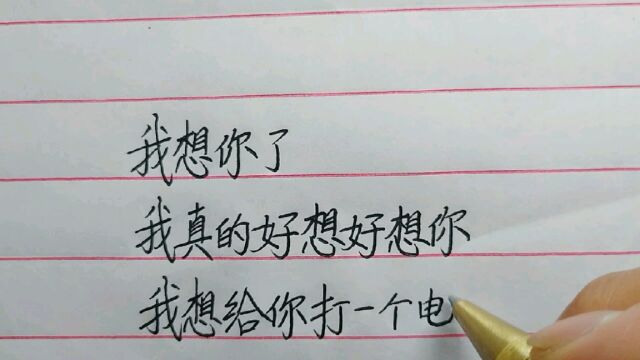 我想你了
我真的好想好想你
我想给你打一个电